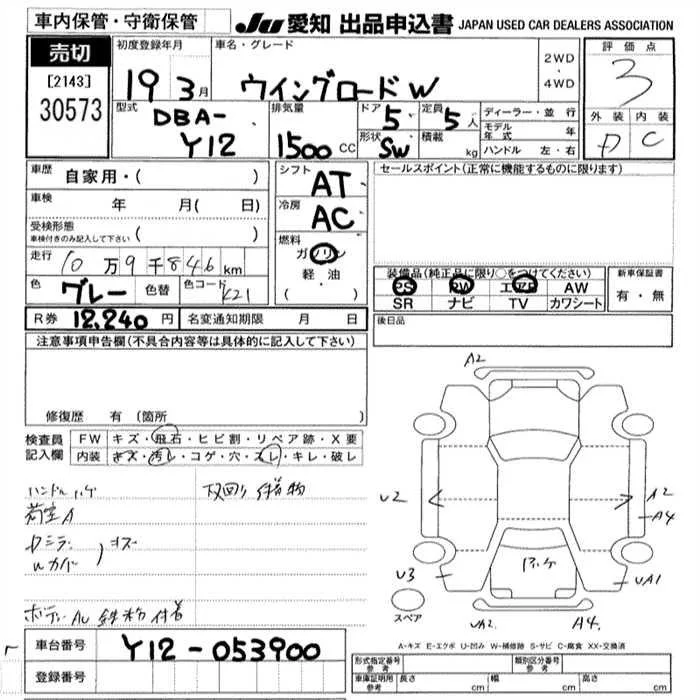 車内保管・守衛保管
JU 愛知 出品申込書 JAPAN USED CAR DEALERS ASSOCIATION
売切
[2143]
30573
初度登録年月
19 3月
車名・グレード
ウイングロード W
2WD
・
4WD
評価点
3
外装 内装
D C
型式
DBA-
Y12
排気量
1500 CC
ドア 5
形状 SW
定員 5人
積載 kg
ディーラー・並行
モデル年式 年
ハンドル 左・右
車歴 自家用・( )
車検 年 月( 日)
受検形態
車検付きのみ記入して下さい ( )
走行 10万9千846km
色 グレー 色替 色コード K21
R券 12,240 円 名変通知期限 月 日
シフト
AT
冷房
AC
燃料
ガソリン
・
軽・油
( )
セールスポイント(正常に機能するものに限ります)
装備品(純正品に限り○をつけてください)
PS PW エアB AW
SR ナビ TV カワシート
新車保証書
有・無
後日品
注意事項申告欄(不具合内容等は具体的に記入して下さい)
修復歴 有 (箇所 )
検査員記入欄
FW キズ・飛石・ヒビ割・リペア跡・X要
内装 キズ・汚レ・コゲ・穴・スレ・キレ・破レ
ハンドル ハゲ
荷室A
下回り 付着物
キズ
ボディーAU 鉄粉付着
A2
U2
A2
A4
U3
UA1
UA2
A4.
スペア
車台番号 Y12-053900
登録番号
A-キズ E-エクボ U-凹み W-補修跡 S-サビ C-腐食 XX-交換済
形式指定番号 参考
類別区分番号 参考
車庫証明用 参考 長さ cm 幅 cm 高さ cm